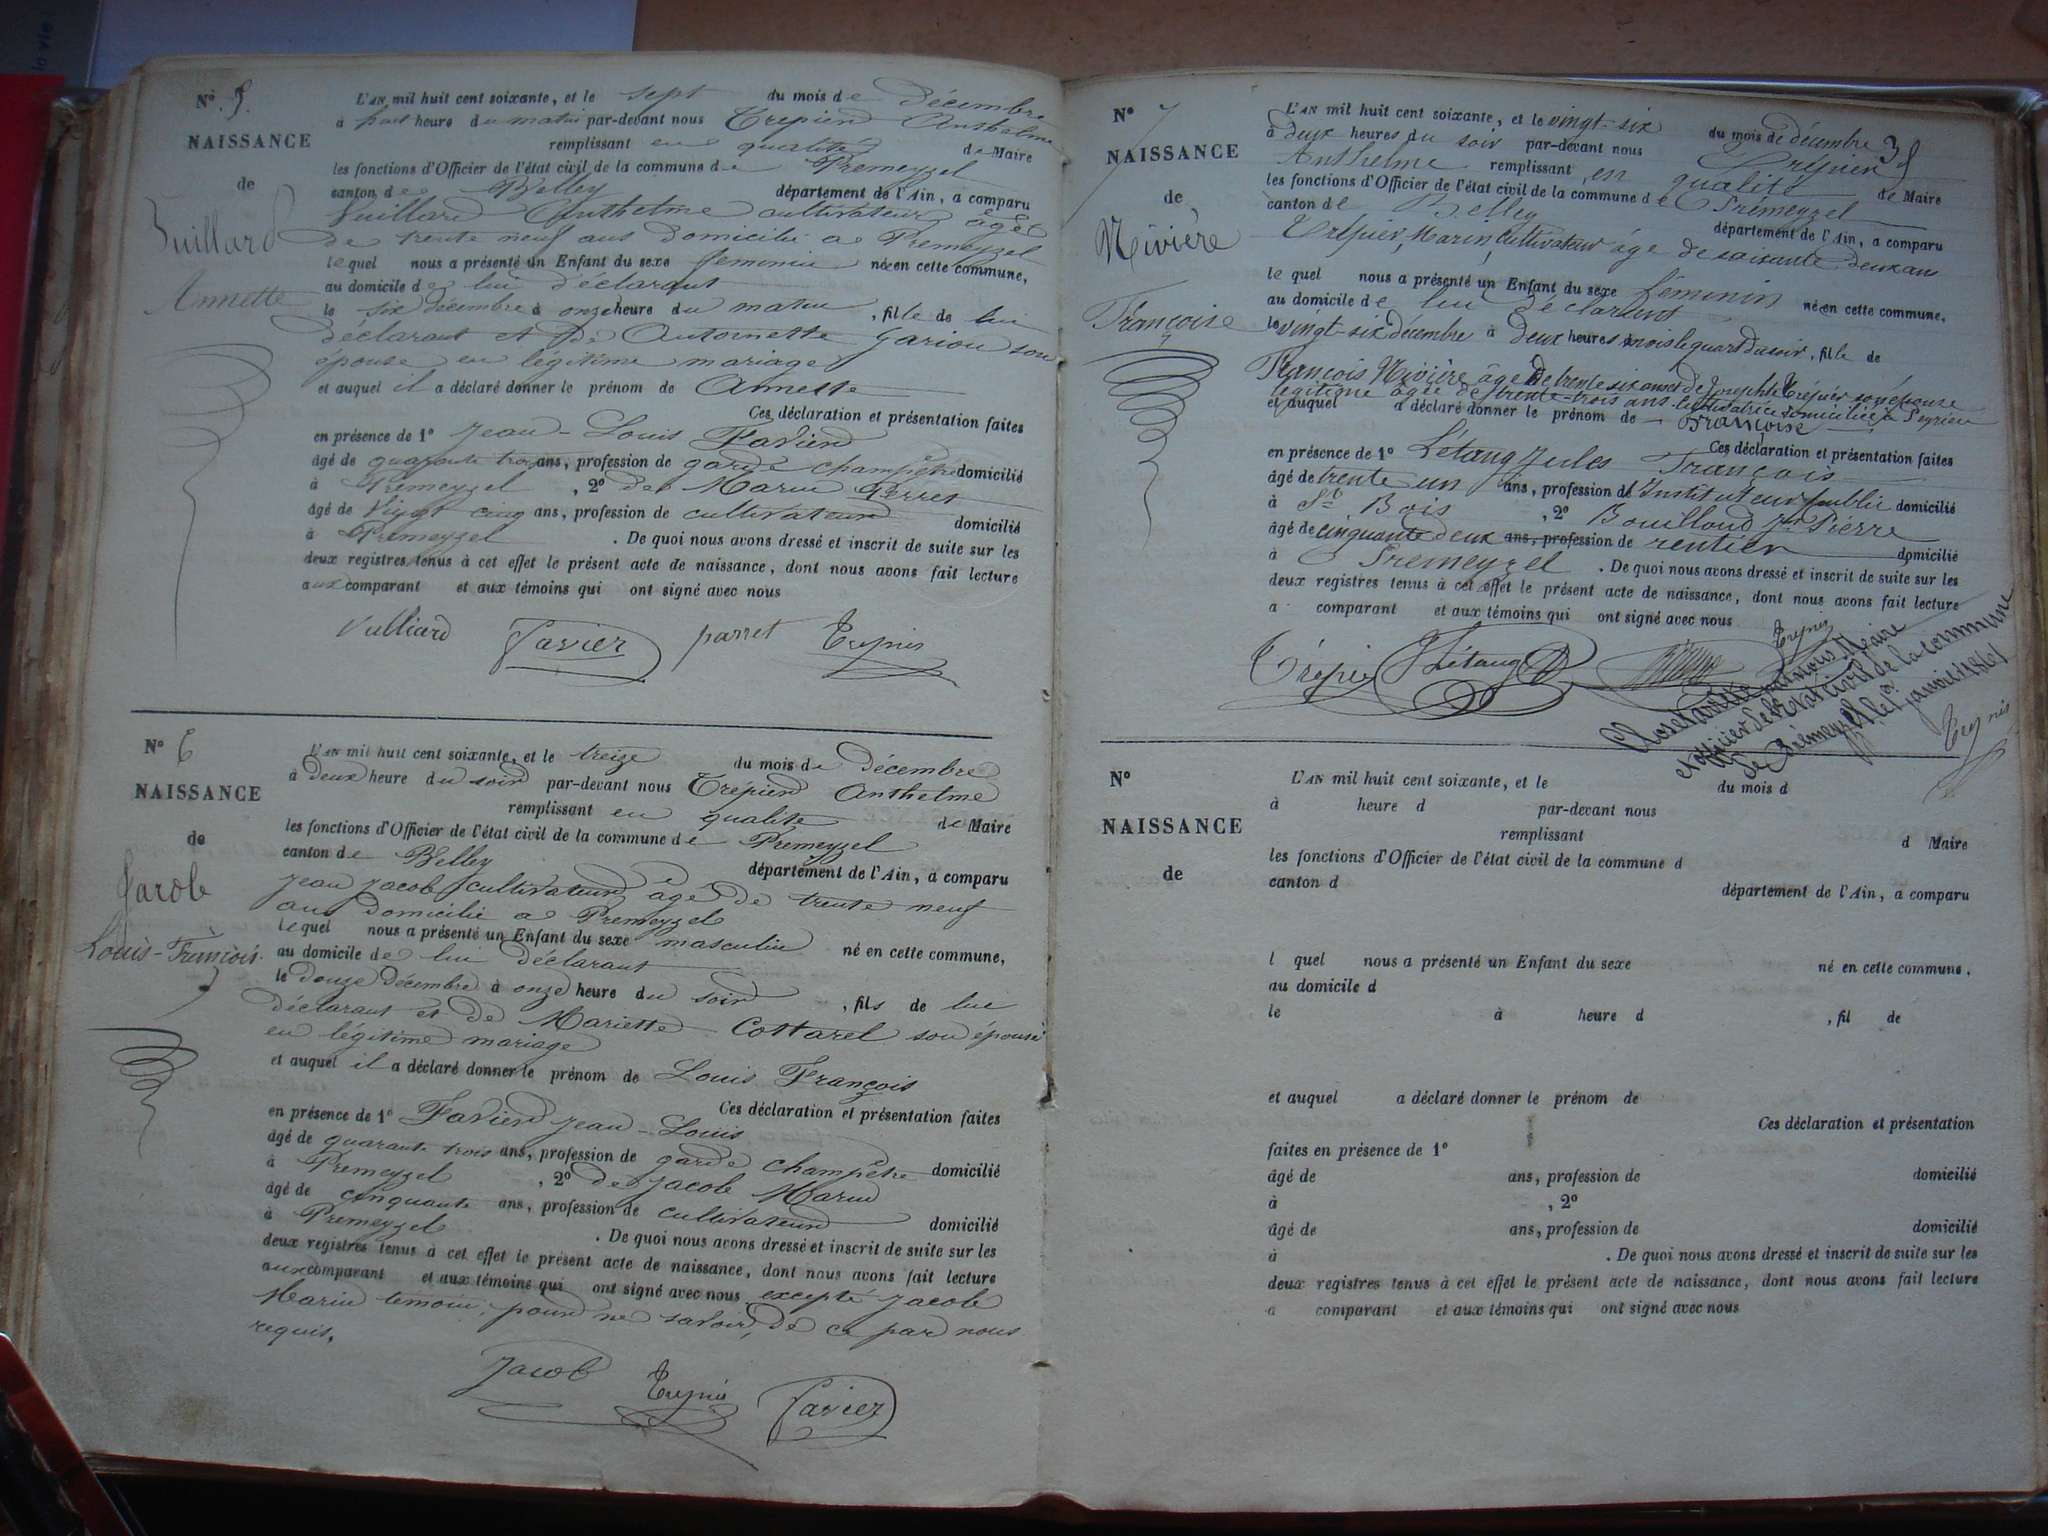 N° 5.
NAISSANCE
de
Vuillard
Annette
L'AN mil huit cent soixante, et le sept du mois de décembre
à huit heure du matin par-devant nous Trépier Anthelme
remplissant en qualité de Maire
les fonctions d'Officier de l'état civil de la commune de Premeyzel
canton de Belley département de l'Ain, a comparu
Vuillard Anthelme cultivateur âgé
de trente neuf ans domicilié a Premeyzel
lequel nous a présenté un Enfant du sexe feminin née en cette commune,
au domicile de lui déclarant
le six décembre à onze heure du matin, fille de lui
déclarant et de Antoinette Gariou son
épouse en légitime mariage
et auquel il a déclaré donner le prénom de Annette
Ces déclaration et présentation faites
en présence de 1° Jean-Louis Favier
âgé de quarante trois ans, profession de garde champêtre domicilié
à Premeyzel, 2° de Marin Perret
âgé de vingt cinq ans, profession de cultivateur domicilié
à Premeyzel. De quoi nous avons dressé et inscrit de suite sur les
deux registres tenus à cet effet le présent acte de naissance, dont nous avons fait lecture
aux comparant et aux témoins qui ont signé avec nous
Vulliard Favier parret Trepier
N° 6
NAISSANCE
de
Jacob
Louis-François
L'AN mil huit cent soixante, et le treize du mois de décembre
à deux heure du soir par-devant nous Trépier Anthelme
remplissant en qualité de Maire
les fonctions d'Officier de l'état civil de la commune de Premeyzel
canton de Belley département de l'Ain, a comparu
Jean Jacob cultivateur âgé de trente neuf
ans domicilié a Premeyzel
lequel nous a présenté un Enfant du sexe masculin né en cette commune,
au domicile de lui déclarant
le douze décembre à onze heure du soir, fils de lui
déclarant et de Mariette Cottarel son épouse
en légitime mariage
et auquel il a déclaré donner le prénom de Louis François
Ces déclaration et présentation faites
en présence de 1° Favier Jean-Louis
âgé de quarante trois ans, profession de garde champêtre domicilié
à Premeyzel, 2° de Jacob Marin
âgé de cinquante ans, profession de cultivateur domicilié
à Premeyzel. De quoi nous avons dressé et inscrit de suite sur les
deux registres tenus à cet effet le présent acte de naissance, dont nous avons fait lecture
aux comparant et aux témoins qui ont signé avec nous excepté Jacob
Marin temoin, pour ne savoir, de ce par nous
requis.
Jacob Trepier Favier
N° 7
NAISSANCE
de
Nivière
Françoise
L'AN mil huit cent soixante, et le vingt-six du mois de décembre
à deux heures du soir par-devant nous Trépier
Anthelme remplissant en qualité de Maire
les fonctions d'Officier de l'état civil de la commune de Prémeyzel
canton de Belley département de l'Ain, a comparu
Trépier, Marin, Cultivateur âgé de soixante deux ans
le quel nous a présenté un Enfant du sexe féminin née en cette commune,
au domicile de lui déclarant
le vingt-six décembre à deux heures moins le quart du soir, fille de
François Nivière âgé de trente six ans et de Josephte Trépier son épouse
légitime âgée de trente-trois ans cultivatrice domiciliée à Peyrieu
et auquel a déclaré donner le prénom de Françoise
Ces déclaration et présentation faites
en présence de 1° Létang Jules François
âgé de trente un ans, profession d'Instituteur public domicilié
à St Bois, 2° Bouilloud Jn Pierre
âgé de cinquante deux ans, profession de rentier domicilié
à Premeyzel. De quoi nous avons dressé et inscrit de suite sur les
deux registres tenus à cet effet le présent acte de naissance, dont nous avons fait lecture
a comparant et aux témoins qui ont signé avec nous
Trépier JLétang Trepier
Clos et arrêté par nous Maire
et officier de l'état civil de la commune
de Premeyzel, le 1er janvier 1861
Trepier
N°
NAISSANCE
de
L'AN mil huit cent soixante, et le du mois d
à heure d par-devant nous
remplissant d Maire
les fonctions d'Officier de l'état civil de la commune d
canton d département de l'Ain, a comparu
l quel nous a présenté un Enfant du sexe né en cette commune,
au domicile d
le à heure d , fil de
et auquel a déclaré donner le prénom de
Ces déclaration et présentation
faites en présence de 1°
âgé de ans, profession de domicilié
à , 2°
âgé de ans, profession de domicilié
à . De quoi nous avons dressé et inscrit de suite sur les
deux registres tenus à cet effet le présent acte de naissance, dont nous avons fait lecture
a comparant et aux témoins qui ont signé avec nous